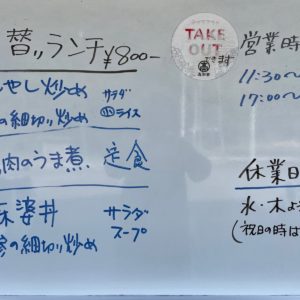 替ッランチ¥800-
やし炒め
サラダ
小ライス
の細切り炒め
肉のうま煮、定食
麻婆丼
サラダ
スープ
の細切り炒め
TAKE
OUT
できます
営業時
11:30〜
17:00〜
休業日
水・木よ
(祝日の時は